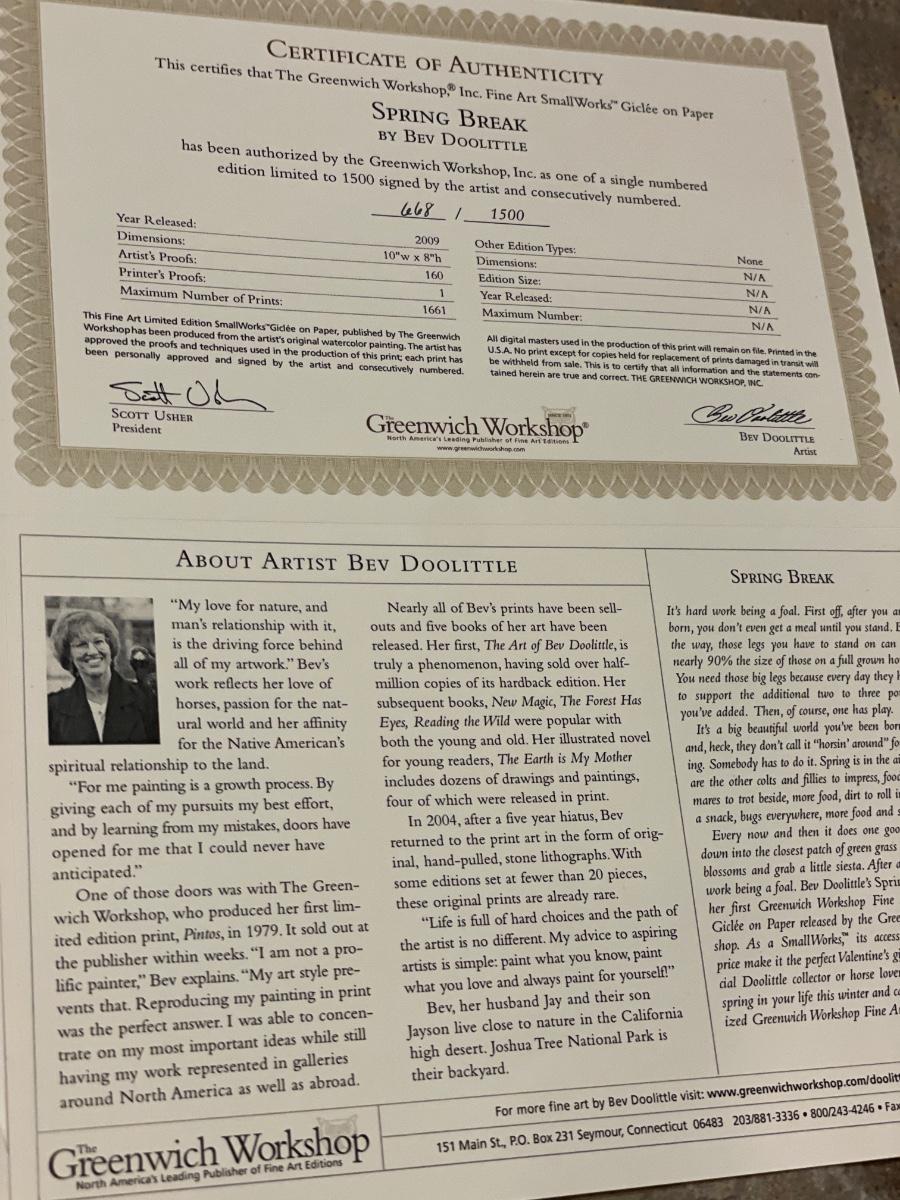 CERTIFICATE OF AUTHENTICITY
This certifies that The Greenwich Workshop,® Inc. Fine Art SmallWorks™ Giclée on Paper
SPRING BREAK
BY BEV DOOLITTLE
has been authorized by the Greenwich Workshop, Inc. as one of a single numbered
edition limited to 1500 signed by the artist and consecutively numbered.
668 / 1500
Year Released: 2009
Dimensions: 10"w x 8"h
Artist's Proofs: 160
Printer's Proofs: 1
Maximum Number of Prints: 1661
Other Edition Types: None
Dimensions: N/A
Edition Size: N/A
Year Released: N/A
Maximum Number: N/A
This Fine Art Limited Edition SmallWorks™Giclée on Paper, published by The Greenwich
Workshop has been produced from the artist's original watercolor painting. The artist has
approved the proofs and techniques used in the production of this print; each print has
been personally approved and signed by the artist and consecutively numbered.
All digital masters used in the production of this print will remain on file. Printed in the
U.S.A. No print except for copies held for replacement of prints damaged in transit will
be withheld from sale. This is to certify that all information and the statements con-
tained herein are true and correct. THE GREENWICH WORKSHOP, INC.
Scott Usher
SCOTT USHER
President
The
Greenwich Workshop®
SINCE 1972
North America's Leading Publisher of Fine Art Editions
www.greenwichworkshop.com
Bev Doolittle
BEV DOOLITTLE
Artist
ABOUT ARTIST BEV DOOLITTLE
"My love for nature, and
man's relationship with it,
is the driving force behind
all of my artwork." Bev's
work reflects her love of
horses, passion for the nat-
ural world and her affinity
for the Native American's
spiritual relationship to the land.
"For me painting is a growth process. By
giving each of my pursuits my best effort,
and by learning from my mistakes, doors have
opened for me that I could never have
anticipated."
One of those doors was with The Green-
wich Workshop, who produced her first lim-
ited edition print, Pintos, in 1979. It sold out at
the publisher within weeks. "I am not a pro-
lific painter," Bev explains. "My art style pre-
vents that. Reproducing my painting in print
was the perfect answer. I was able to concen-
trate on my most important ideas while still
having my work represented in galleries
around North America as well as abroad.
Nearly all of Bev's prints have been sell-
outs and five books of her art have been
released. Her first, The Art of Bev Doolittle, is
truly a phenomenon, having sold over half-
million copies of its hardback edition. Her
subsequent books, New Magic, The Forest Has
Eyes, Reading the Wild were popular with
both the young and old. Her illustrated novel
for young readers, The Earth is My Mother
includes dozens of drawings and paintings,
four of which were released in print.
In 2004, after a five year hiatus, Bev
returned to the print art in the form of orig-
inal, hand-pulled, stone lithographs. With
some editions set at fewer than 20 pieces,
these original prints are already rare.
"Life is full of hard choices and the path of
the artist is no different. My advice to aspiring
artists is simple: paint what you know, paint
what you love and always paint for yourself!"
Bev, her husband Jay and their son
Jayson live close to nature in the California
high desert. Joshua Tree National Park is
their backyard.
SPRING BREAK
It's hard work being a foal. First off, after you a
born, you don't even get a meal until you stand.
the way, those legs you have to stand on can
nearly 90% the size of those on a full grown ho
You need those big legs because every day they
to support the additional two to three po
you've added. Then, of course, one has play.
It's a big beautiful world you've been bor
and, heck, they don't call it "horsin' around" fo
ing. Somebody has to do it. Spring is in the ai
are the other colts and fillies to impress, foo
mares to trot beside, more food, dirt to roll i
a snack, bugs everywhere, more food and s
Every now and then it does one goo
down into the closest patch of green grass
blossoms and grab a little siesta. After a
work being a foal. Bev Doolittle's Spri
her first Greenwich Workshop Fine
Giclée on Paper released by the Gree
shop. As a SmallWorks,™ its access
price make it the perfect Valentine's gi
cial Doolittle collector or horse love
spring in your life this winter and c
ized Greenwich Workshop Fine A
The
Greenwich Workshop
North America's Leading Publisher of Fine Art Editions
For more fine art by Bev Doolittle visit: www.greenwichworkshop.com/doolit
151 Main St., P.O. Box 231 Seymour, Connecticut 06483 203/881-3336 • 800/243-4246 • Fax